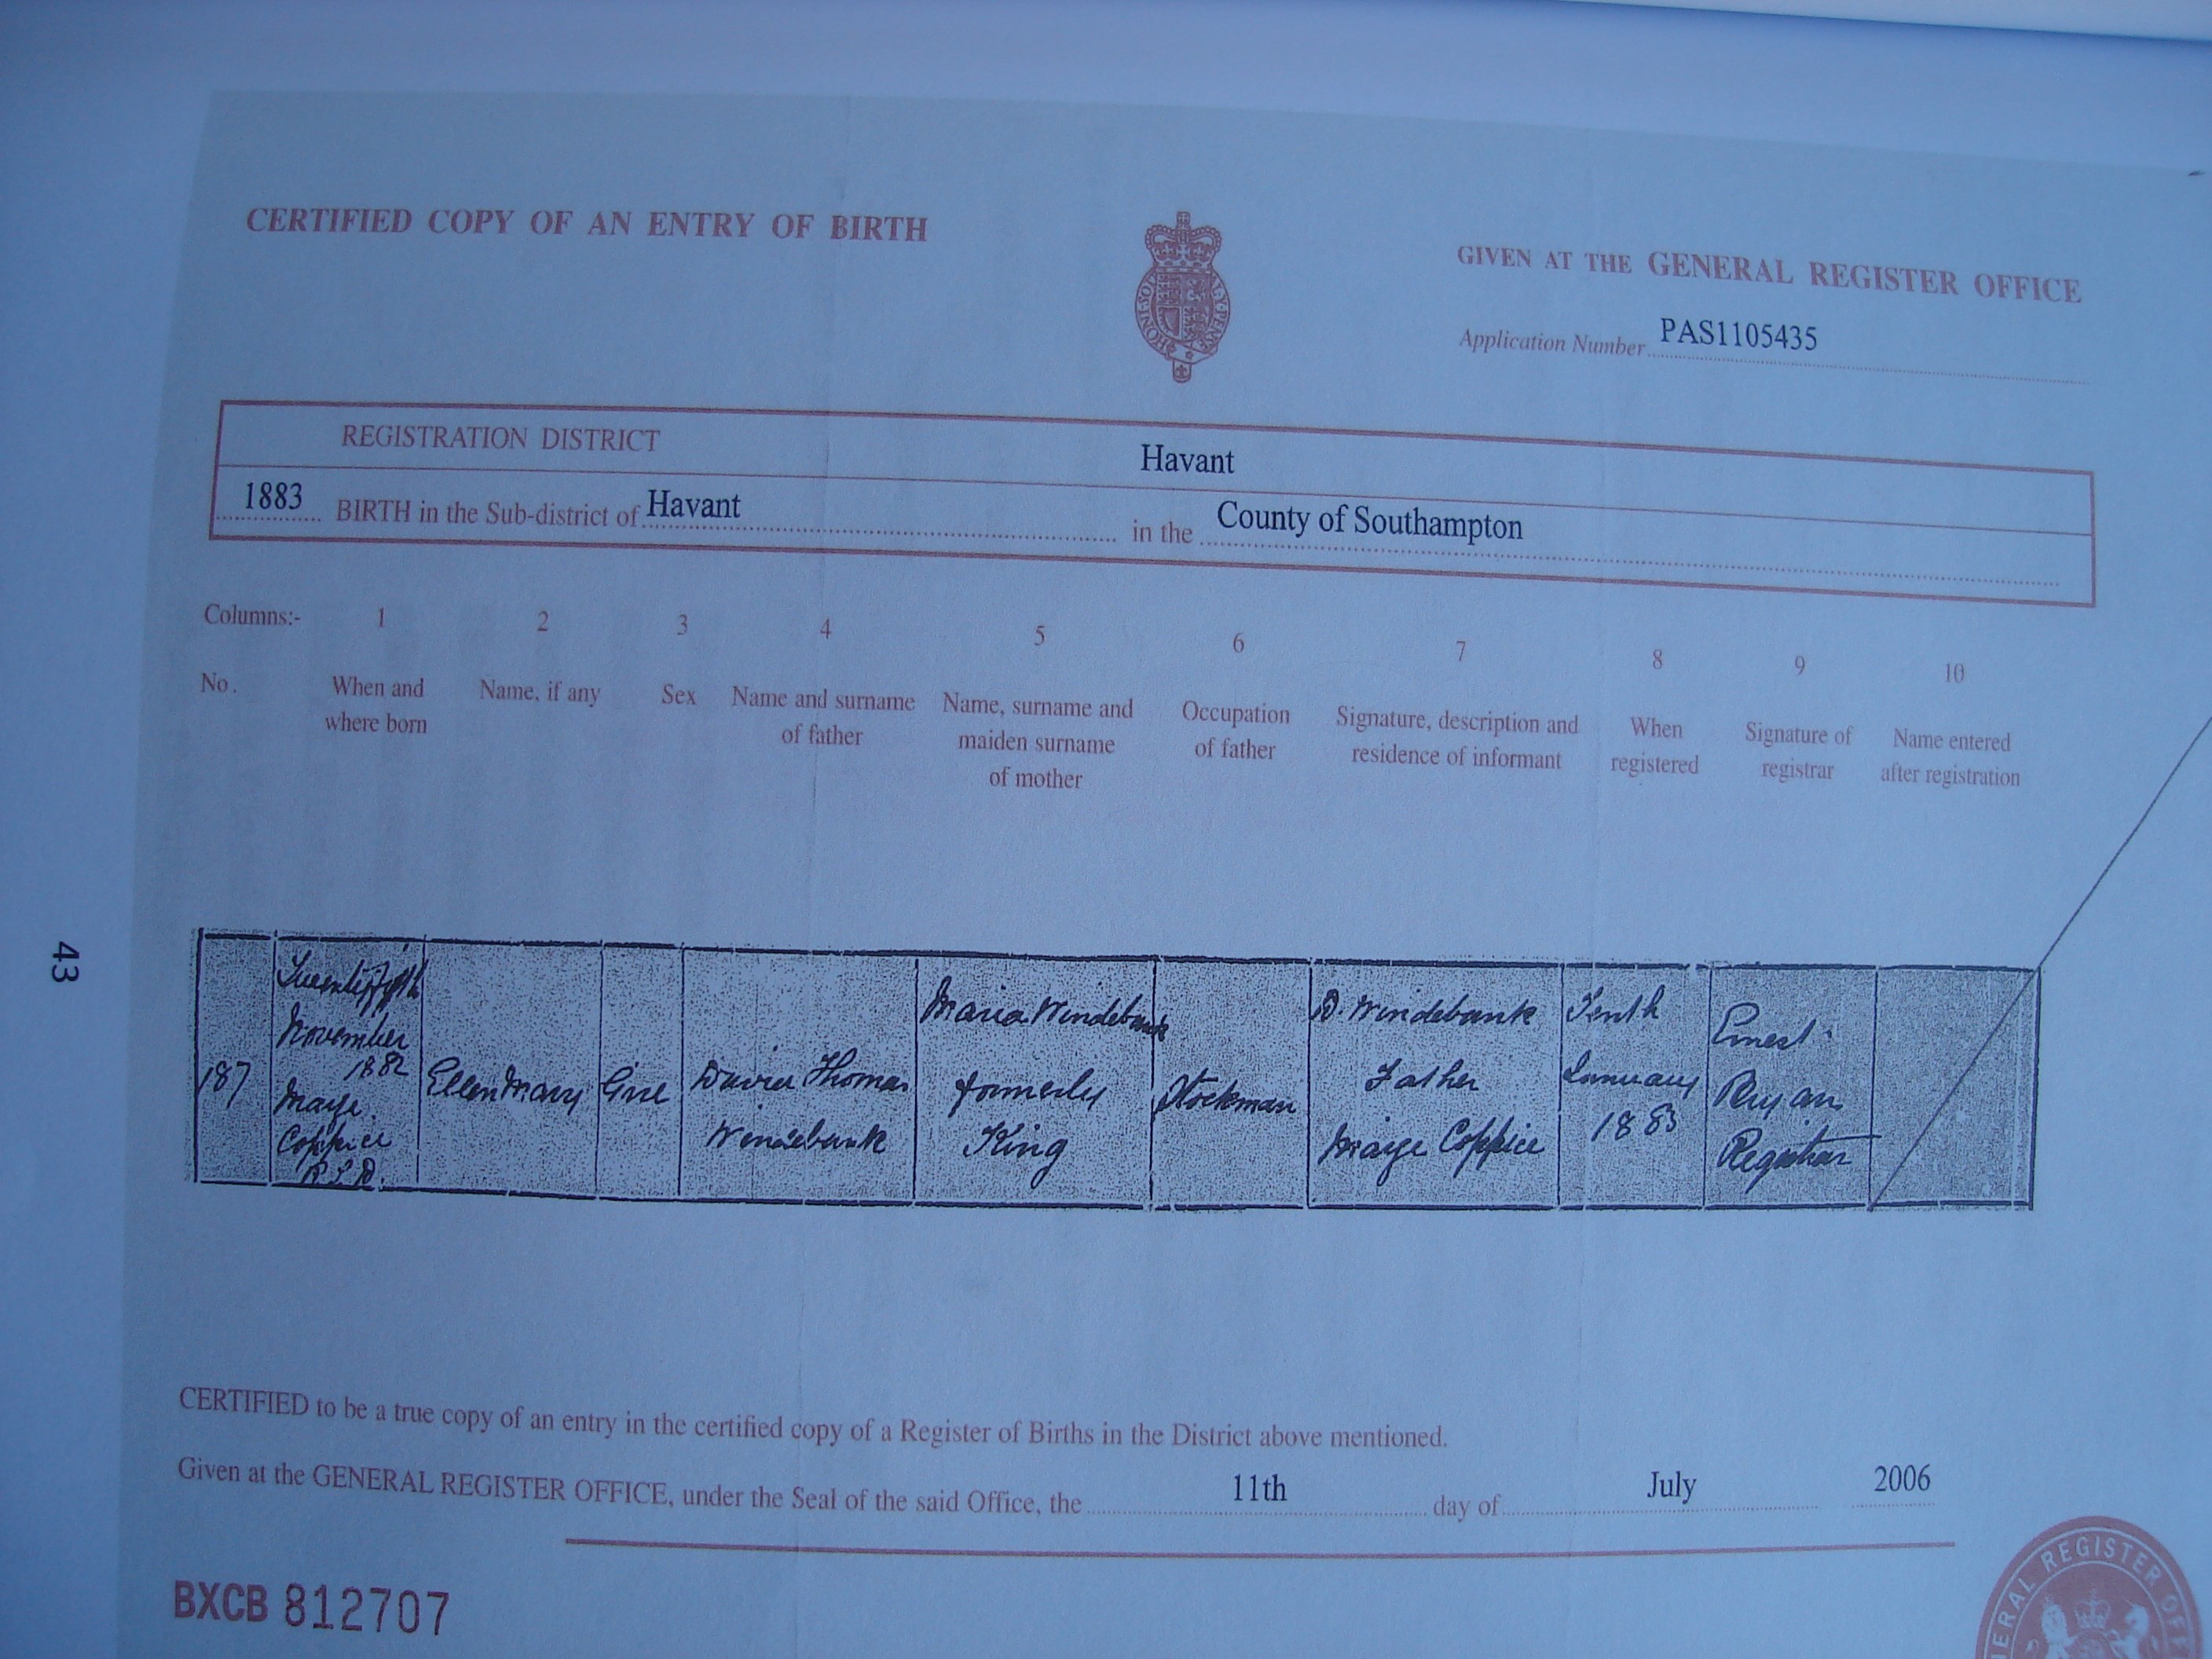 CERTIFIED COPY OF AN ENTRY OF BIRTH
GIVEN AT THE GENERAL REGISTER OFFICE
Application Number PAS1105435
HONI SOI
REGISTRATION DISTRICT Havant
1883 BIRTH in the Sub-district of Havant in the County of Southampton
Columns:- 1 2 3 4 5 6 7 8 9 10
No. When and where born
Name, if any
Sex
Name and surname of father
Name, surname and maiden surname of mother
Occupation of father
Signature, description and residence of informant
When registered
Signature of registrar
Name entered after registration
187
Twenty fifth
November
1882
Coppice
R.S.D.
Ellen Mary
Girl
David Thomas
Windebank
Maria Windebank
formerly
King
Stockman
D. Windebank
Father
Coppice
Tenth
January
1883
Ernest
Ryan
Registrar
CERTIFIED to be a true copy of an entry in the certified copy of a Register of Births in the District above mentioned.
Given at the GENERAL REGISTER OFFICE, under the Seal of the said Office, the 11th day of July 2006
BXCB 812707
REGISTER
43